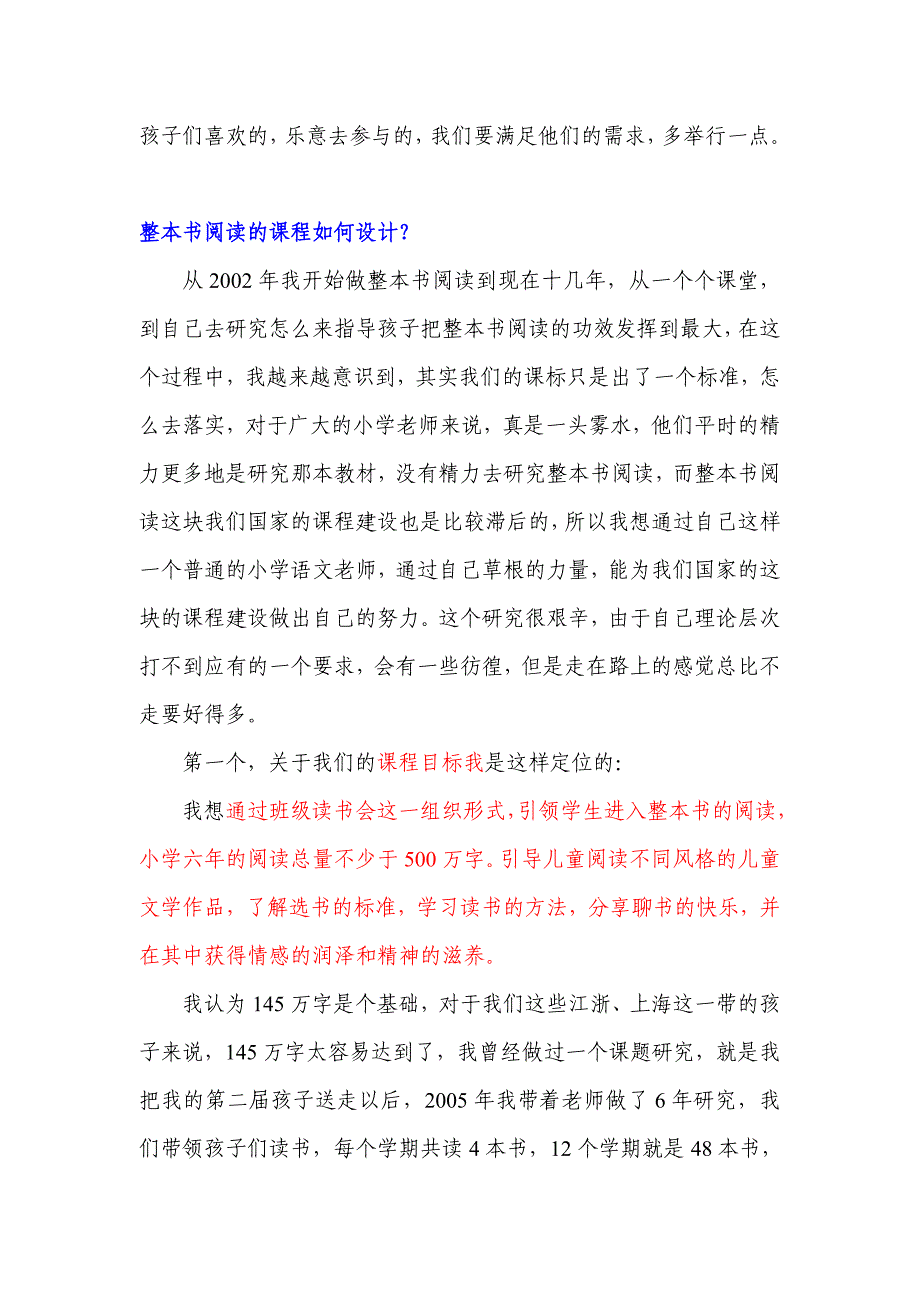 孩子们喜欢的，乐意去参与的，我们要满足他们的需求，多举行一点。
整本书阅读的课程如何设计？
从 2002 年我开始做整本书阅读到现在十几年，从一个个课堂，
到自己去研究怎么来指导孩子把整本书阅读的功效发挥到最大，在这
个过程中，我越来越意识到，其实我们的课标只是出了一个标准，怎
么去落实，对于广大的小学老师来说，真是一头雾水，他们平时的精
力更多地是研究那本教材，没有精力去研究整本书阅读，而整本书阅
读这块我们国家的课程建设也是比较滞后的，所以我想通过自己这样
一个普通的小学语文老师，通过自己草根的力量，能为我们国家的这
块的课程建设做出自己的努力。这个研究很艰辛，由于自己理论层次
打不到应有的一个要求，会有一些彷徨，但是走在路上的感觉总比不
走要好得多。
第一个，关于我们的课程目标我是这样定位的：
我想通过班级读书会这一组织形式，引领学生进入整本书的阅读，
小学六年的阅读总量不少于 500 万字。引导儿童阅读不同风格的儿童
文学作品，了解选书的标准，学习读书的方法，分享聊书的快乐，并
在其中获得情感的润泽和精神的滋养。
我认为 145 万字是个基础，对于我们这些江浙、上海这一带的孩
子来说，145 万字太容易达到了，我曾经做过一个课题研究，就是我
把我的第二届孩子送走以后，2005 年我带着老师做了 6 年研究，我
们带领孩子们读书，每个学期共读 4 本书，12 个学期就是 48 本书，